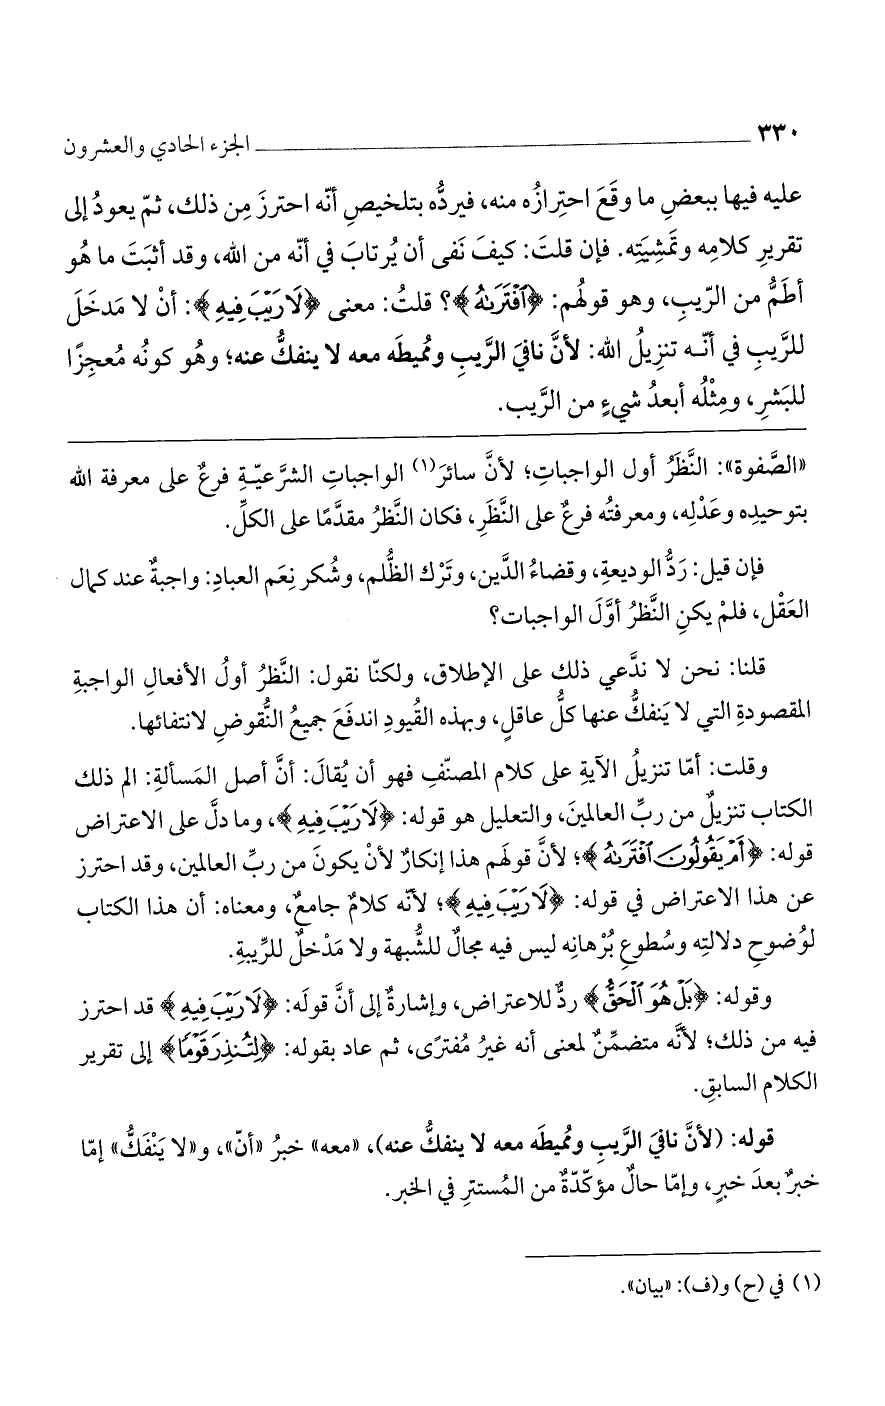 ٣٣٠ الجزء الحادي والعشرون
عليه فيها ببعضِ ما وقَعَ احتِرازُه منه، فيردُّه بتلخيصِ أنّه احترزَ مِن ذلك، ثمّ يعودُ إلى
تقريرِ كلامِه وتَمشِيَتِه. فإن قلتَ: كيفَ نَفى أن يُرتابَ في أنّه من الله، وقد أثبَتَ ما هُو
أطَمُّ من الرّيبِ، وهو قولُهم: ﴿ٱفۡتَرَىٰهُ﴾؟ قلتُ: معنى ﴿لَا رَيۡبَ فِيهِ﴾: أنْ لا مَدخَلَ
للرَّيبِ في أنّـه تنزِيلُ الله: لأنَّ نافيَ الرَّيبِ ومُميطَه معه لا ينفكُّ عنه؛ وهُو كونُه مُعجِزًا
للبَشرِ، ومِثْلُه أبعدُ شيءٍ من الرَّيب.
«الصَّفوة»: النَّظَرُ أول الواجباتِ؛ لأنَّ سائرَ(١) الواجباتِ الشرَّعيّـةِ فرعٌ على معرفة الله
بتوحيدِه وعَدْلِه، ومعرفتُه فرعٌ على النَّظَرِ، فكان النَّظرُ مقدَّمًا على الكلِّ.
فإن قيل: رَدُّ الوديعةِ، وقضاءُ الدَّين، وتَرْك الظُّلم، وشُكر نِعَم العبادِ: واجبةٌ عند كمال
العَقْل، فلمْ يكنِ النَّظرُ أوَّلَ الواجبات؟
قلنا: نحن لا ندَّعي ذلك على الإطلاق، ولكنّا نقول: النَّظرُ أولُ الأفعالِ الواجبةِ
المقصودةِ التي لا يَنفكُّ عنها كلُّ عاقلٍ، وبهذه القُيودِ اندفَعَ جميعُ النُّقوضِ لانتفائها.
وقلت: أمّا تنزيلُ الآيةِ على كلام المصنّفِ فهو أن يُقالَ: أنَّ أصل المَسألةِ: الم ذلك
الكتاب تنزيلٌ من ربِّ العالمينَ، والتعليل هو قوله: ﴿لَا رَيۡبَ فِيهِ﴾، وما دلَّ على الاعتراض
قوله: ﴿أَمۡ يَقُولُونَ ٱفۡتَرَىٰهُ﴾؛ لأنَّ قولَهم هذا إنكارٌ لأنْ يكونَ من ربِّ العالمين، وقد احترز
عن هذا الاعتراض في قوله: ﴿لَا رَيۡبَ فِيهِ﴾؛ لأنّه كلامٌ جامعٌ، ومعناه: أن هذا الكتاب
لوُضوحِ دلالتِه وسُطوعِ بُرْهانِه ليس فيه مجالٌ للشُّبهة ولا مَدْخلٌ للرِّيبةِ.
وقوله: ﴿بَلۡ هُوَ ٱلۡحَقُّ﴾ ردٌّ للاعتراض، وإشارةٌ إلى أنَّ قولَه: ﴿لَا رَيۡبَ فِيهِ﴾ قد احترز
فيه من ذلك؛ لأنَّه متضمِّنٌ لمعنى أنه غيرُ مُفترًى، ثم عاد بقوله: ﴿لِتُنذِرَ قَوۡمًا﴾ إلى تقرير
الكلام السابقِ.
قوله: (لأنَّ نافيَ الرَّيبِ ومُميطَه معه لا ينفكُّ عنه)، «معه» خبرُ «أنّ»، و«لا يَنْفَكُّ» إمّا
خبرٌ بعدَ خبرٍ، وإمّا حالٌ مؤكّدةٌ من المُستترِ في الخبر.
(١) في (ح) و(ف): «بيان».